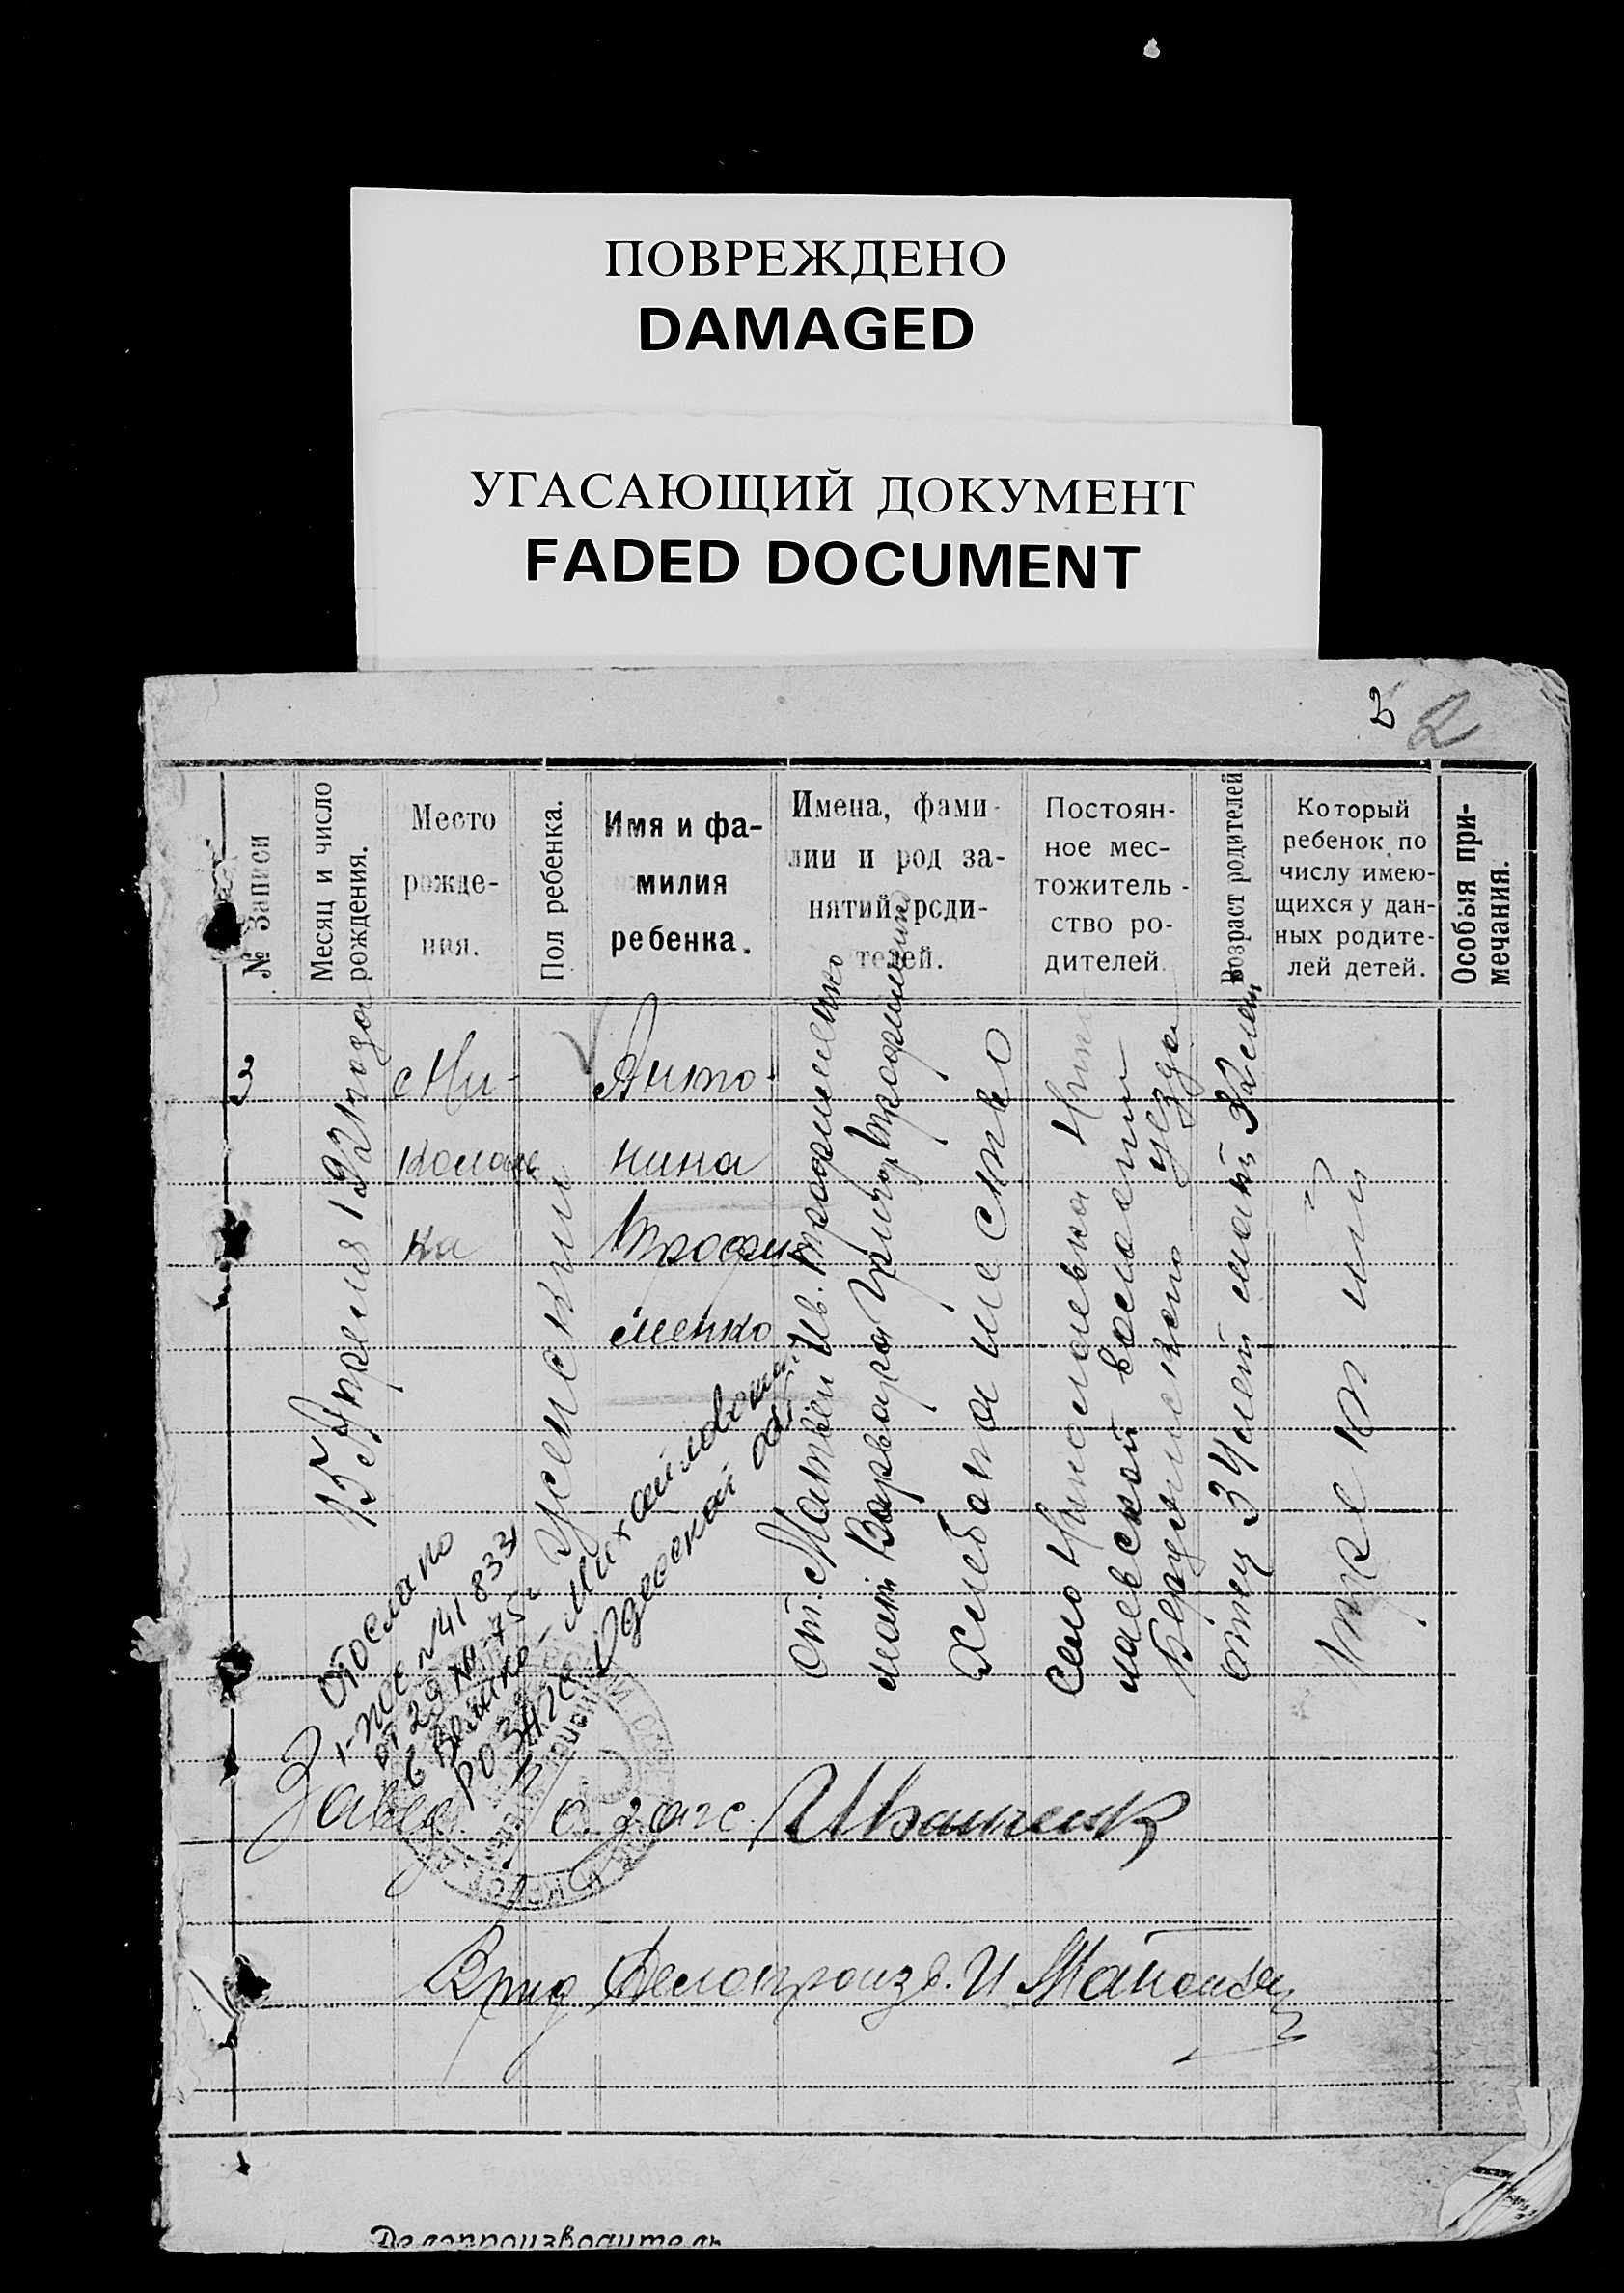 ПОВРЕЖДЕНО
DAMAGED
УГАСАЮЩИЙ ДОКУМЕНТ
FADED DOCUMENT
2
2
№ Записи
Месяц и число
рождения.
Место
рожде-
ния.
Пол ребенка.
Имя и фа-
милия
ребенка.
Имена, фами-
лии и род за-
нятий роди-
телей.
Постоян-
ное мес-
тожитель-
ство ро-
дителей.
Возраст родителей
Который
ребенок по
числу имею-
щихся у дан-
ных родите-
лей детей.
Особыя при-
мечания.
3
15 Апреля 1921 года
Ни-
колаев
ка
женский
Анто-
нина
Трофи
менко
от. Матвей Ив. Трофименко
мать Варвара Григор. Трофименко
Хлебопашество
село Николаевка Нико
лаевской волости
Бердянского уезда
отец 34 лет мать 32 лет
третий
Отослано
1-пос N 41 833
от 29 XII-75 г
в Велико-Михайловский
РОЗАГС Одесской обл
Завед. п/о загс. Ивашенк
Врид Делопроизв. И
Делопроизводитель